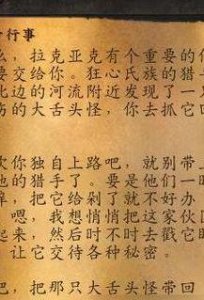 行事
么，拉克亚克有个重要的
要交给你。狂心氏族的猎
北边的河流附近发现了一只
伤的大舌头怪，你去抓它回
次你独自上路吧，就别带上
他的猎手了。要是他们一时
草，把它给剁了就不好办
嗯，我想悄悄把这家伙
起来，然后时不时去戳它
让它交待各种秘密。
吧，把那只大舌头怪带回